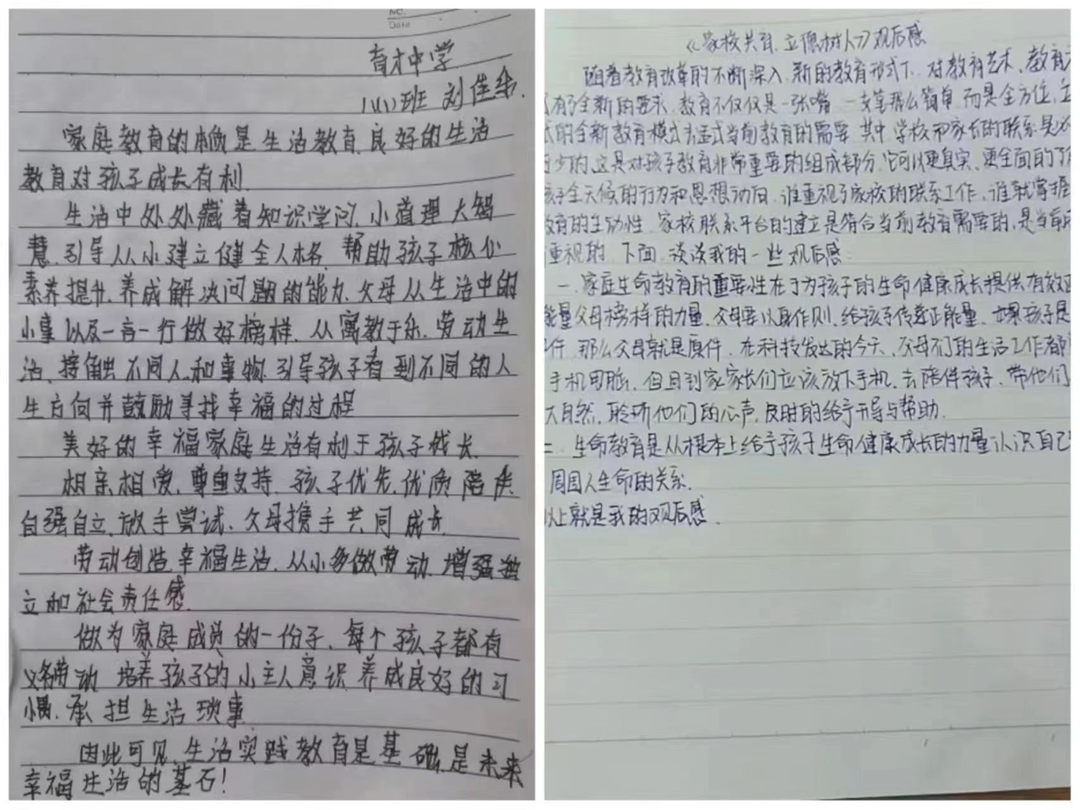 NO.
Date
育才中学
1(1)班 刘佳
家庭教育的本质是生活教育,良好的生活
教育对孩子成长有利.
生活中处处藏着知识学问.小道理大智
慧.引导从小建立健全人格.帮助孩子核心
素养提升.养成解决问题的能力.父母从生活中的
小事以及一言一行做好榜样.从寓教于乐.劳动生
活.接触不同人和事物.引导孩子看到不同的人
生方向并鼓励寻找幸福的过程
美好的幸福家庭生活有利于孩子成长.
相亲相爱.尊重支持.孩子优先.优质陪伴
自强自立.放手尝试.父母携手共同成长
劳动创造幸福生活.从小多做劳动.增强独
立和社会责任感.
做为家庭成员的一份子.每个孩子都有
义务劳动.培养孩子的小主人意识养成良好的习
惯.承担生活琐事
因此可见.生活实践教育是基础.是未来
幸福生活的基石!
《家校共育.立德树人》观后感
随着教育改革的不断深入.新的教育形式下.对教育艺术.教育
有了全新的要求.教育不仅仅是一张嘴.一支笔那么简单.而是全方位.立
的全新教育模式去适式当前教育的需要.其中.学校和家长的联系是
少的.这是对孩子教育非常重要的组成部分.它可以更真实.更全面的了解
孩子全天候的行为和思想动向.谁重视了家校的联系工作.谁就掌握
教育的主动性.家校联系平台的建立是符合当前教育需要的.是当前
重视的.下面.谈谈我的一些观后感:
一.家庭生命教育的重要性在于为孩子的生命健康成长提供有效
能量父母榜样的力量.父母要以身作则.给孩子传递正能量.如果孩子是
件.那么父母就是原件.在科技发达的今天.父母们的生活工作都
手机电脑.但回到家家长们应该放下手机.去陪伴孩子.带他们
大自然.聆听他们的心声.及时的给予开导与帮助.
二.生命教育是从根本上给予孩子生命健康成长的力量认识自己
周围人生命的关系.
以上就是我的观后感.